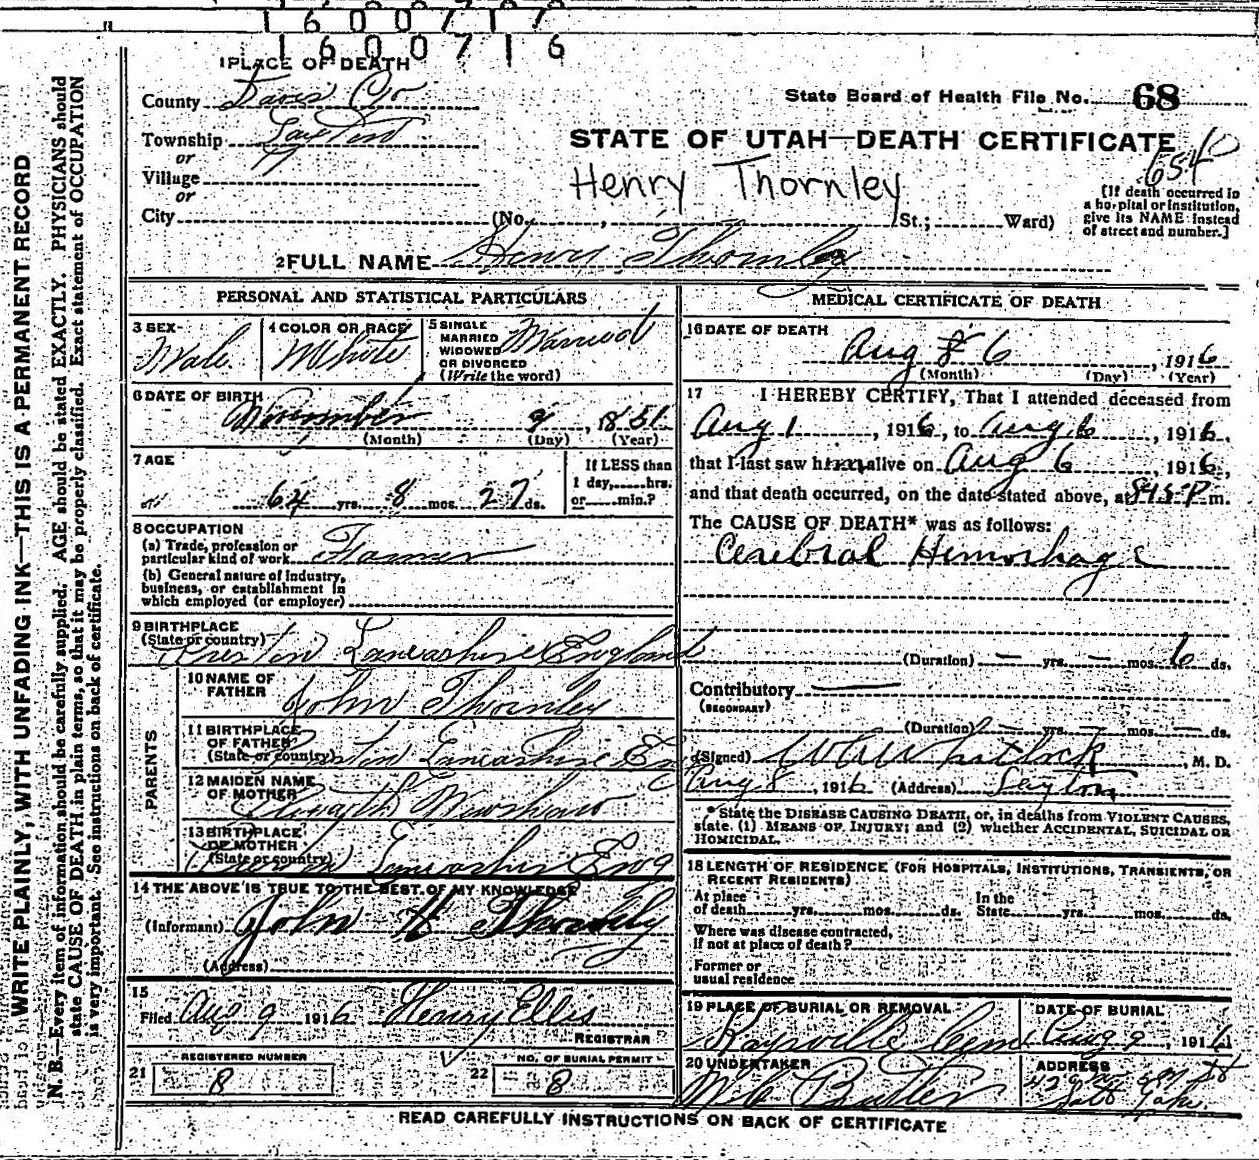 1 6 0 0 7 1 7
1 6 0 0 7 1 6
1 PLACE OF DEATH
County Davis Co
Township Layton
or
Village
or
City (No. , St.; Ward)
State Board of Health File No. 68
STATE OF UTAH—DEATH CERTIFICATE
654
Henry Thornley
[If death occurred in
a hospital or institution,
give its NAME instead
of street and number.]
2 FULL NAME Henry Thornley
PERSONAL AND STATISTICAL PARTICULARS
3 SEX
Male
4 COLOR OR RACE
White
5 SINGLE
MARRIED
WIDOWED
OR DIVORCED
(Write the word)
Married
6 DATE OF BIRTH
November 9, 1851
(Month) (Day) (Year)
7 AGE
64 yrs. 8 mos. 27 ds.
If LESS than
1 day, hrs.
or min.?
8 OCCUPATION
(a) Trade, profession or
particular kind of work Farmer
(b) General nature of industry,
business, or establishment in
which employed (or employer)
9 BIRTHPLACE
(State or country)
Preston Lancashire England
PARENTS
10 NAME OF
FATHER
John Thornley
11 BIRTHPLACE
OF FATHER
(State or country) Preston Lancashire Eng
12 MAIDEN NAME
OF MOTHER
13 BIRTHPLACE
OF MOTHER
(State or country) Preston Lancashire Eng
14 THE ABOVE IS TRUE TO THE BEST OF MY KNOWLEDGE
(Informant) John H Thornley
(Address)
15
Filed Aug 9 1916 Henry Ellis
REGISTRAR
REGISTERED NUMBER
21 8
NO. OF BURIAL PERMIT
22 8
MEDICAL CERTIFICATE OF DEATH
16 DATE OF DEATH
Aug 6, 1916
(Month) (Day) (Year)
17 I HEREBY CERTIFY, That I attended deceased from
Aug 1, 1916, to Aug 6, 1916,
that I last saw him alive on Aug 6, 1916,
and that death occurred, on the date stated above, at 845 P m.
The CAUSE OF DEATH* was as follows:
Cerebral Hemorhage
(Duration) — yrs. — mos. 6 ds.
Contributory —
(SECONDARY)
(Duration) — yrs. — mos. — ds.
(Signed) Whitlock, M. D.
Aug 8, 1916 (Address) Layton
* State the DISEASE CAUSING DEATH, or, in deaths from VIOLENT CAUSES,
state (1) MEANS OF INJURY; and (2) whether ACCIDENTAL, SUICIDAL OR
HOMICIDAL.
18 LENGTH OF RESIDENCE (FOR HOSPITALS, INSTITUTIONS, TRANSIENTS, OR
RECENT RESIDENTS)
At place
of death yrs. mos. ds.
In the
State yrs. mos. ds.
Where was disease contracted,
if not at place of death?
Former or
usual residence
19 PLACE OF BURIAL OR REMOVAL
Kaysville Cem
DATE OF BURIAL
Aug 9, 1916
20 UNDERTAKER
Butler
ADDRESS
Salt Lake
READ CAREFULLY INSTRUCTIONS ON BACK OF CERTIFICATE
WRITE PLAINLY, WITH UNFADING INK—THIS IS A PERMANENT RECORD
N. B.—Every item of information should be carefully supplied. AGE should be stated EXACTLY. PHYSICIANS should
state CAUSE OF DEATH in plain terms, so that it may be properly classified. Exact statement of OCCUPATION
is very important. See instructions on back of certificate.